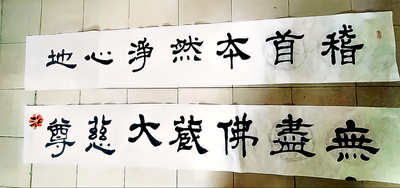 稽首本然淨心地
無盡佛藏大慈尊